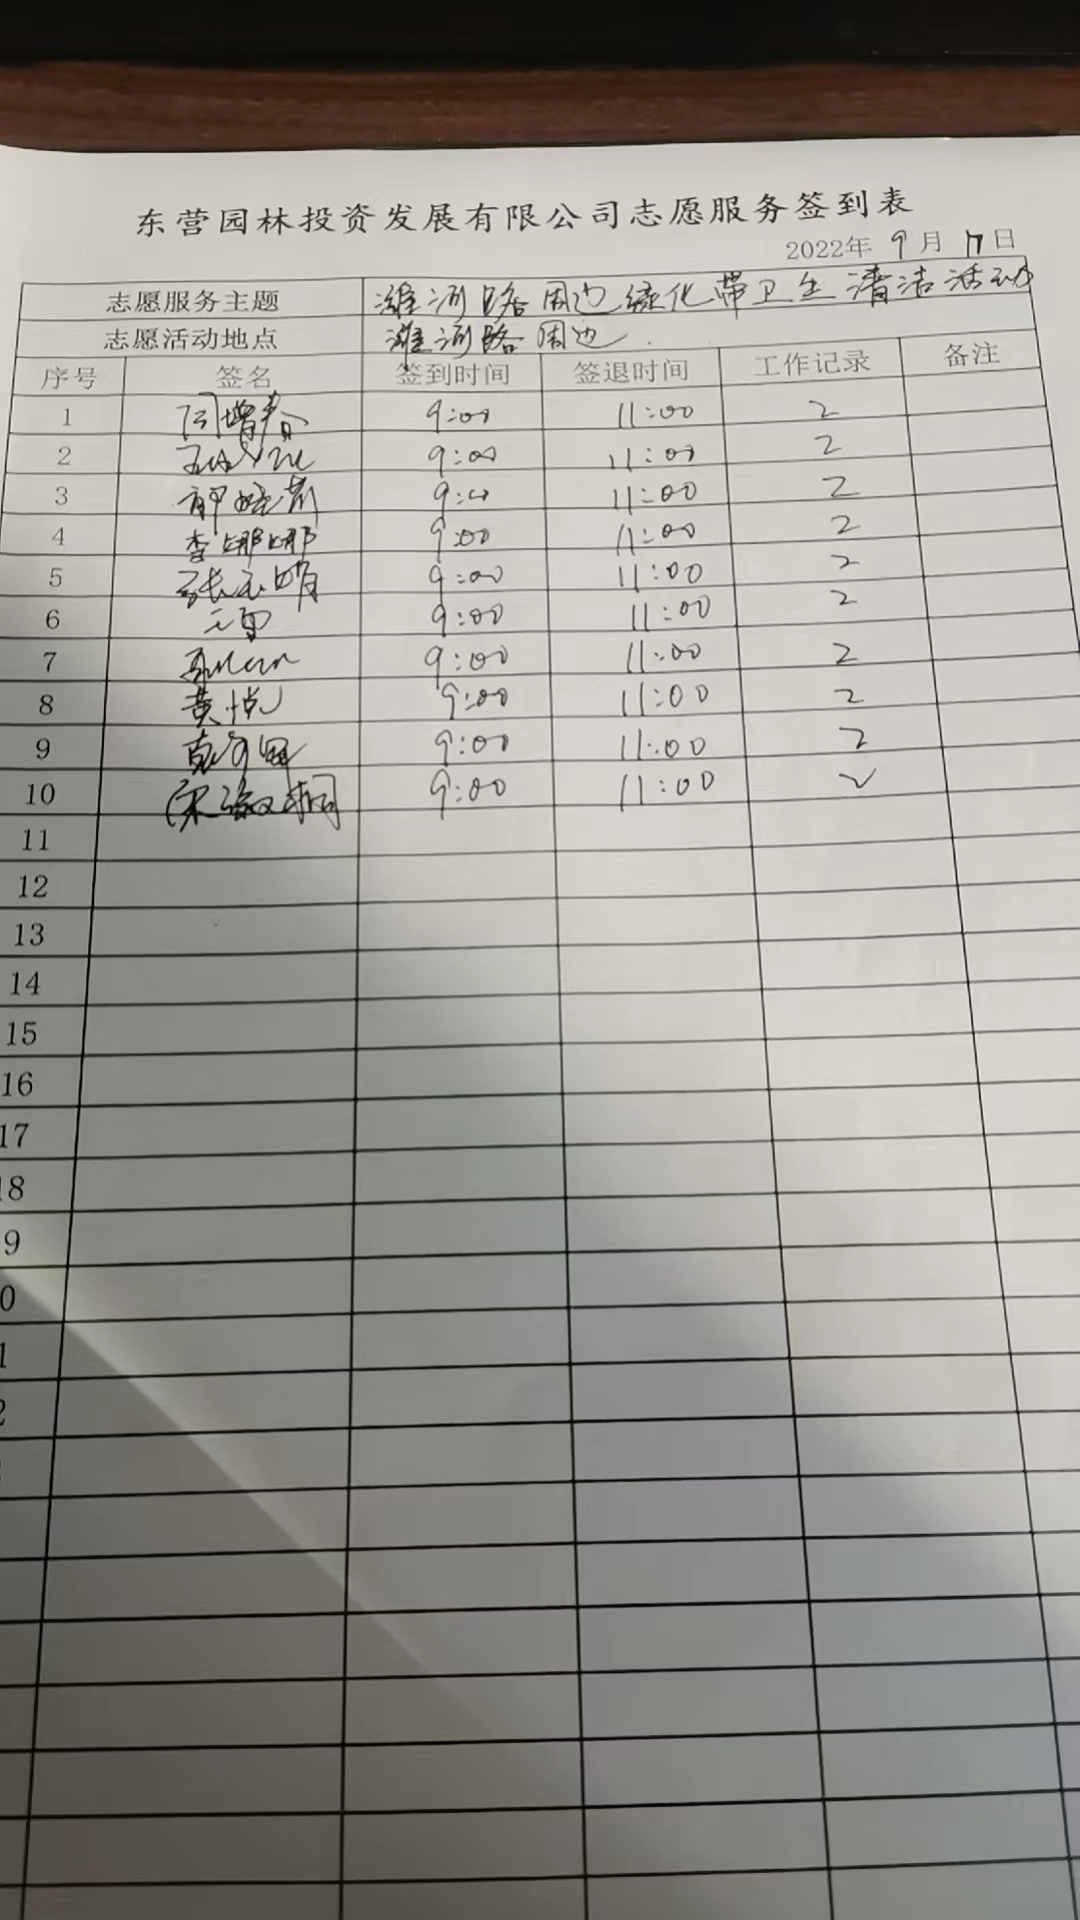 东营园林投资发展有限公司志愿服务签到表
2022年 9月 17日
志愿服务主题 潍河路周边绿化带卫生清洁活动
志愿活动地点 潍河路周边.
序号 签名 签到时间 签退时间 工作记录 备注
1 闫增春 9:00 11:00 2
2 9:00 11:00 2
3 9:00 11:00 2
4 李娜娜 9:00 11:00 2
5 张玉明 9:00 11:00 2
6 9:00 11:00 2
7 9:00 11:00 2
8 黄悦 9:00 11:00 2
9 9:00 11:00 2
10 9:00 11:00 2
11
12
13
14
15
16
17
18
9
0
1
2